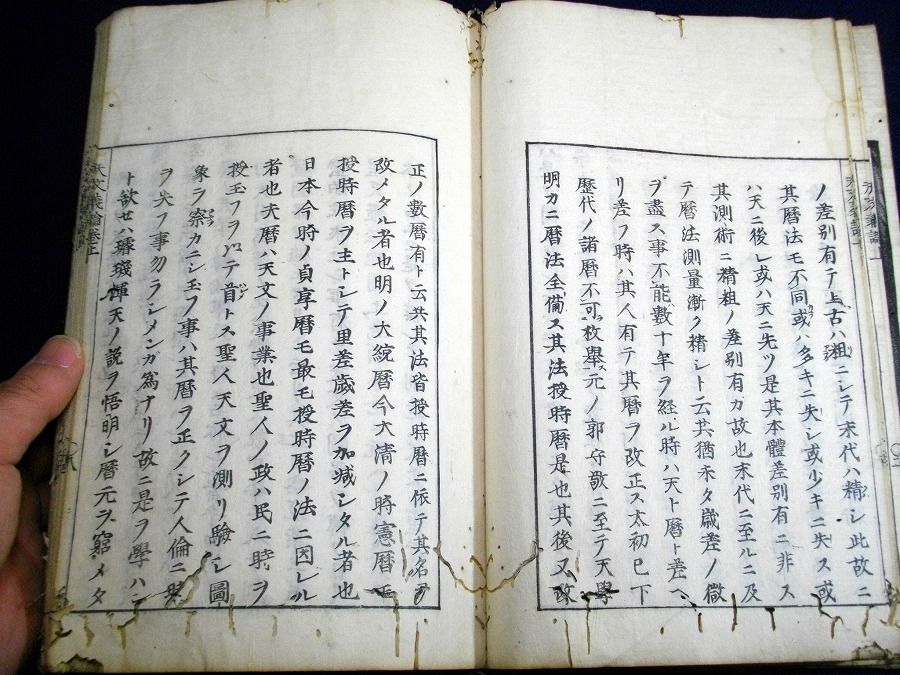 ノ差別有テ上古ハ粗ニシテ末代ハ精シ此故ニ
其暦法モ不同或ハ多キニ失シ或少キニ失ス或
ハ天ニ後レ或ハ天ニ先ツ是其本體差別有ニ非ス
其測術ニ精粗ノ差別有カ故也末代ニ至ルニ及
テ暦法測量漸ク精シト云共猶未タ歳差ノ微
ヲ盡ス事不能數十年ヲ経ル時ハ天ト暦ト差ヘ
リ差フ時ハ其人有テ其暦ヲ改正ス太初已下
歴代ノ諸暦不可枚舉元ノ郭守敬ニ至テ天學
明カニ暦法全備ス其法授時暦是也其後又改
正ノ數暦有ト云共其法皆授時暦ニ依テ其名ヲ
改メタル者也明ノ大統暦今大清ノ時憲暦モ
授時暦ヲ主トシテ里差歳差ヲ加減シタル者也
日本今時ノ貞享暦モ最モ授時暦ノ法ニ因レル
者也夫暦ハ天文ノ事業也聖人ノ政ハ民ニ時ヲ
授玉フヲ以テ首トス聖人天文ヲ測リ験シ圖
象ヲ察カニシ玉フ事ハ其暦ヲ正クシテ人倫ニ時
ヲ失フ事勿ラシメンガ為ナリ故ニ是ヲ學ハン
ト欲セハ璿璣渾天ノ説ヲ悟明シ暦元ヲ窮メタ